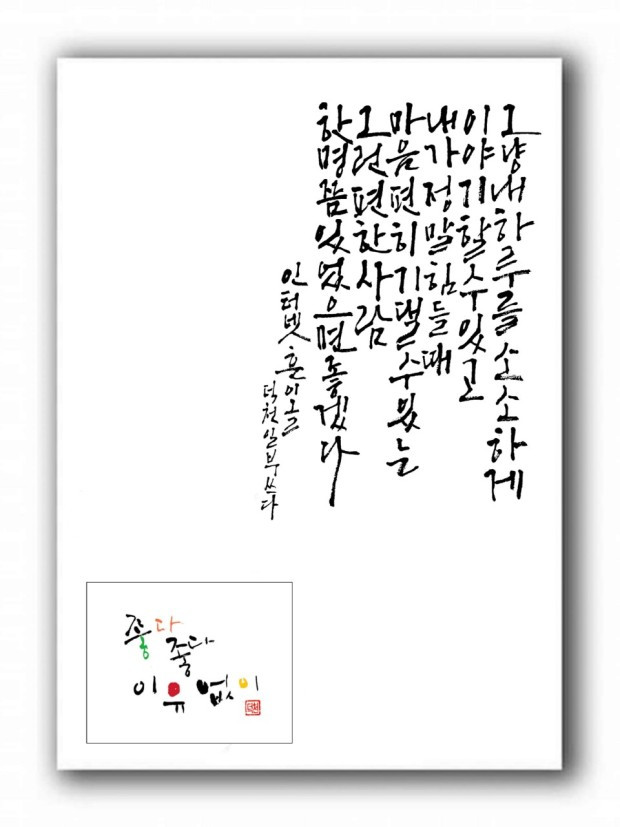 그냥 내 하루를 소소하게
이야기할 수 있고
내가 정말 힘들때
마음 편히 기댈 수 있는
그런 편한 사람
한명쯤 있었으면 좋겠다
인터넷 흔이글
덕천 일부 쓰다
좋다
좋다
이유 없이